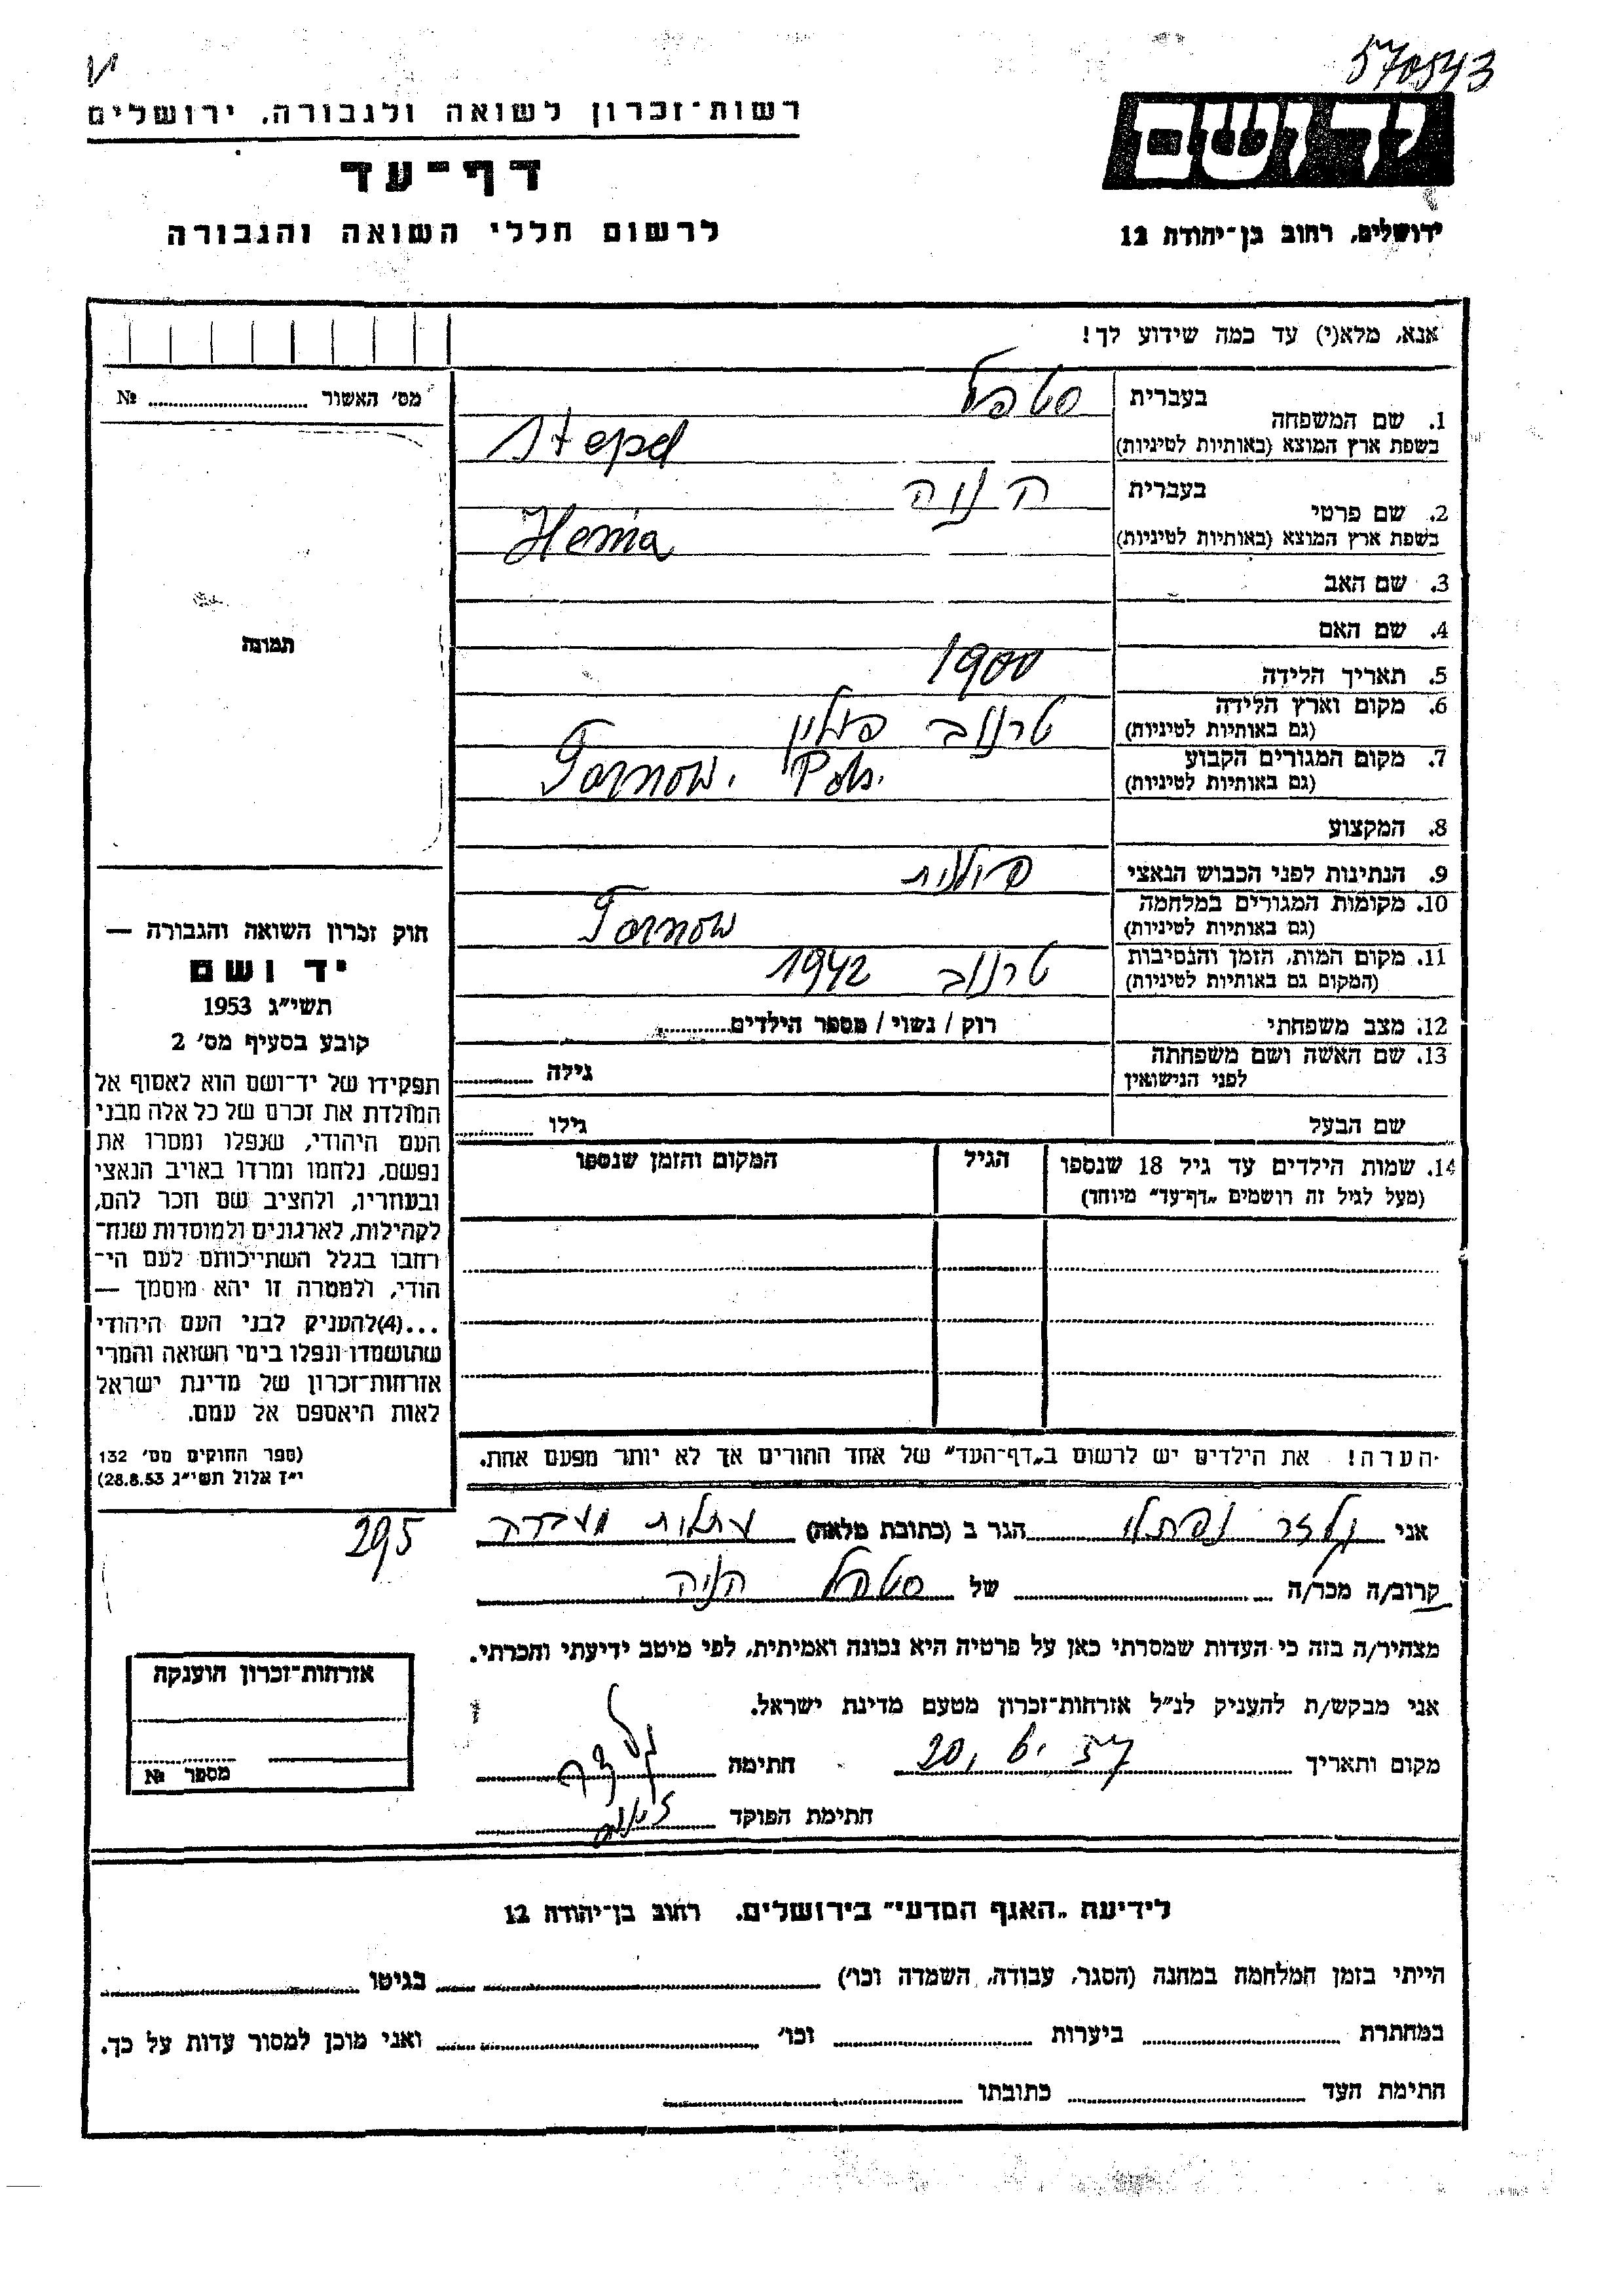 570543
רשות־זכרון לשואה ולגבורה, ירושלים
יד ושם
דף־עד
לרשום חללי השואה והגבורה
ירושלים, רחוב בן־יהודה 12
אנא, מלא(י) עד כמה שידוע לך!
מס׳ האשור № 
תמונה
1. שם המשפחה
בעברית סטפל
בשפת ארץ המוצא (באותיות לטיניות) Stepel
2. שם פרטי
בעברית הניה
בשפת ארץ המוצא (באותיות לטיניות) Henia
3. שם האב
4. שם האם
5. תאריך הלידה 1900
6. מקום וארץ הלידה טרנוב פולין
(גם באותיות לטיניות)
7. מקום המגורים הקבוע Tarnow. Pol.
(גם באותיות לטיניות)
8. המקצוע
9. הנתינות לפני הכבוש הנאצי פולנית
10. מקומות המגורים במלחמה Tarnow
(גם באותיות לטיניות)
11. מקום המות, הזמן והנסיבות טרנוב 1942
(המקום גם באותיות לטיניות)
12. מצב משפחתי רוק / נשוי / מספר הילדים
13. שם האשה ושם משפחתה
לפני הנישואין גילה
שם הבעל גילו
14. שמות הילדים עד גיל 18 שנספו הגיל המקום והזמן שנספו
(מעל לגיל זה רושמים „דף־עד” מיוחד)
חוק זכרון השואה והגבורה —
יד ושם
תשי״ג 1953
קובע בסעיף מס׳ 2
תפקידו של יד־ושם הוא לאסוף אל
המולדת את זכרם של כל אלה מבני
העם היהודי, שנפלו ומסרו את
נפשם, נלחמו ומרדו באויב הנאצי
ובעוזריו, ולהציב שם וזכר להם,
לקהילות, לארגונים ולמוסדות שנח־
רבו בגלל השתייכותם לעם הי־
הודי, ולמטרה זו יהא מוסמך —
...(4)להעניק לבני העם היהודי
שהושמדו ונפלו בימי השואה והמרי
אזרחות־זכרון של מדינת ישראל
לאות היאספם אל עמם.
(ספר החוקים מס׳ 132
י״ז אלול תשי״ג 28.8.53)
הערה! את הילדים יש לרשום ב„דף־העד” של אחד ההורים אך לא יותר מפעם אחת.
295
אני נפתלי הגר ב (כתובת מלאה) עתלית מעברה
קרוב/ה מכר/ה של סטפל הניה
מצהיר/ה בזה כי העדות שמסרתי כאן על פרטיה היא נכונה ואמיתית, לפי מיטב ידיעתי והכרתי.
אני מבקש/ת להעניק לנ״ל אזרחות־זכרון מטעם מדינת ישראל.
מקום ותאריך 20. 6. 57 חתימה
חתימת הפוקד
אזרחות־זכרון הוענקה
מספר №
לידיעת „האגף המדעי” בירושלים. רחוב בן־יהודה 12
הייתי בזמן המלחמה במחנה (הסגר, עבודה, השמדה וכו׳) בגיטו
במחתרת ביערות וכו׳ ואני מוכן למסור עדות על כך.
חתימת העד כתובתו